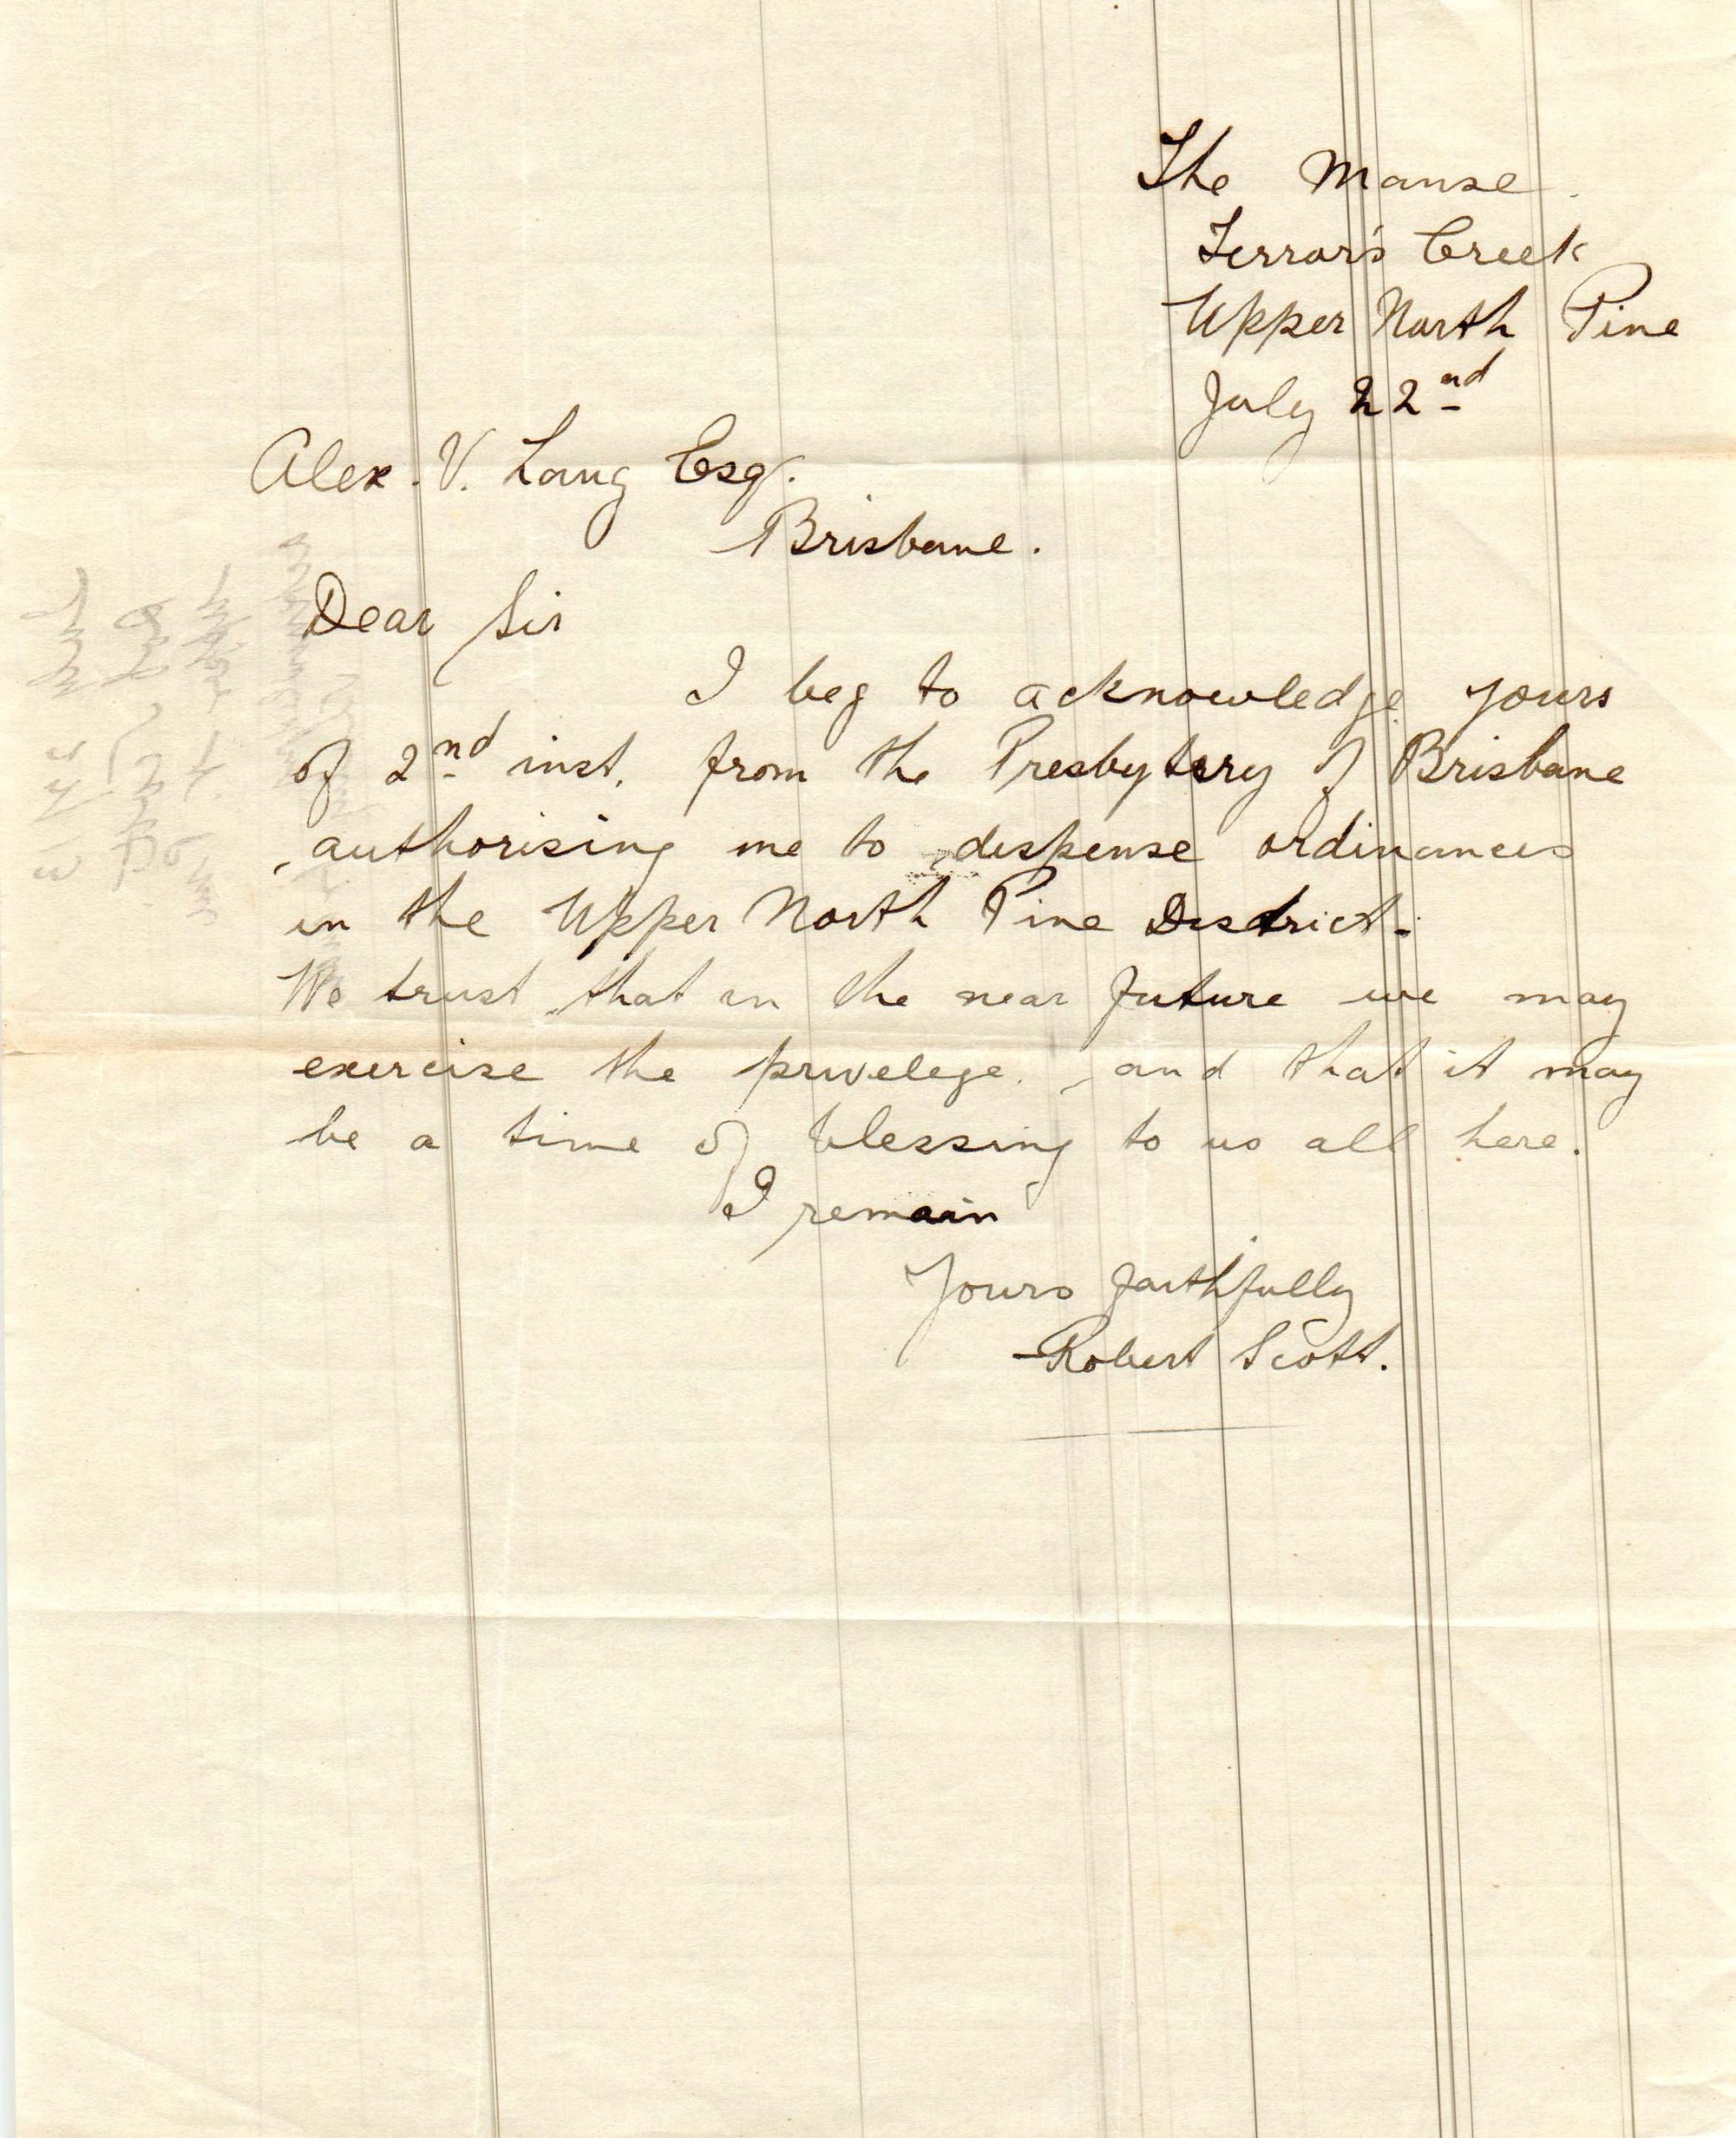 The Manse
Terror's Creek
Upper North Pine
July 22nd
Alex. V. Lang Esq.
Brisbane.
Dear Sir
I beg to acknowledge yours
of 2nd inst. from the Presbytery of Brisbane
authorising me to dispense ordinances
in the Upper North Pine District.
We trust that in the near future we may
exercise the privelege, and that it may
be a time of blessing to us all here.
I remain
Yours faithfully
Robert Scott.